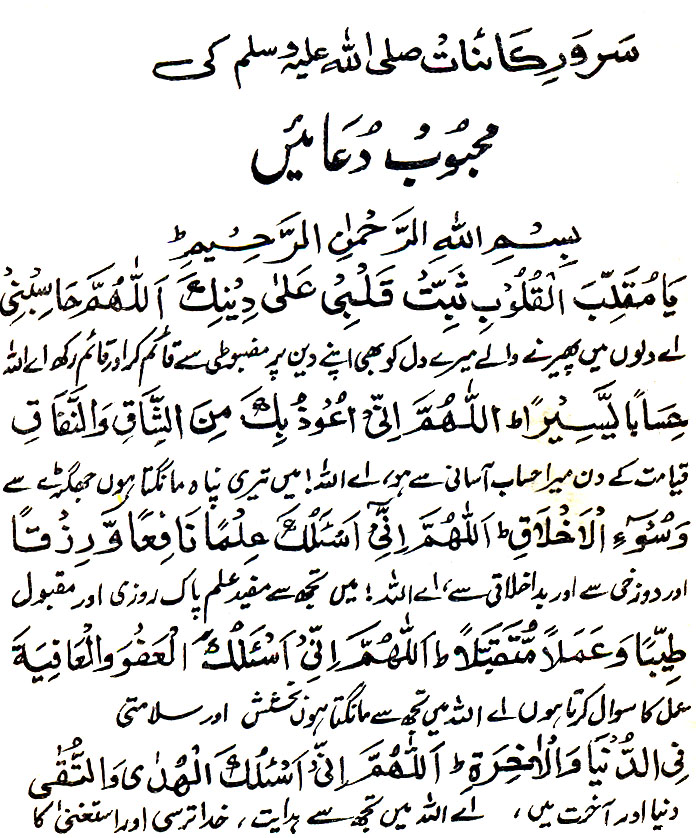 سَرورِ کائنات صلی اللہ علیہ وسلم کی
محبُوبْ دُعائیں
بِسْمِ اللہِ الرَّحْمٰنِ الرَّحِیْمِ ط
یَا مُقَلِّبَ الْقُلُوْبِ ثَبِّتْ قَلْبِیْ عَلیٰ دِیْنِکَ اَللّٰھُمَّ حَاسِبْنِیْ
اے دلوں میں پھیرنے والے میرے دل کو بھی اپنے دین پر مضبوطی سے قائم کر اور قائم رکھ اے اللہ
حِسَابًا یَّسِیْرًا ط اَللّٰھُمَّ اِنِّیْ اَعُوْذُ بِکَ مِنَ الشِّقَاقِ وَالنِّفَاقِ
قیامت کے دن میرا حساب آسانی سے ہو، اے اللہ! میں تیری پناہ مانگتا ہوں جھگڑے سے
وَسُوْٓءِ الْاَخْلَاقِ ط اَللّٰھُمَّ اِنِّیْٓ اَسْئَلُکَ عِلْمًا نَافِعًا وَّ رِزْقًا
اور دوزخی سے اور بداخلاقی سے، اے اللہ! میں تجھ سے مفید علم پاک روزی اور مقبول
طَیِّبًا وَ عَمَلًا مُّتَقَبَّلًا ط اَللّٰھُمَّ اِنِّیْ اَسْئَلُکَ الْعَفْوَ وَالْعَافِیَةَ
عمل کا سوال کرتا ہوں اے اللہ میں تجھ سے مانگتا ہوں بخشش اور سلامتی
فِی الدُّنْیَا وَالْاٰخِرَةِ ط اَللّٰھُمَّ اِنِّیْ اَسْئَلُکَ الْھُدٰی وَالتُّقٰی
دنیا اور آخرت میں، اے اللہ میں تجھ سے ہدایت، خدا ترسی اور استغنیٰ کا